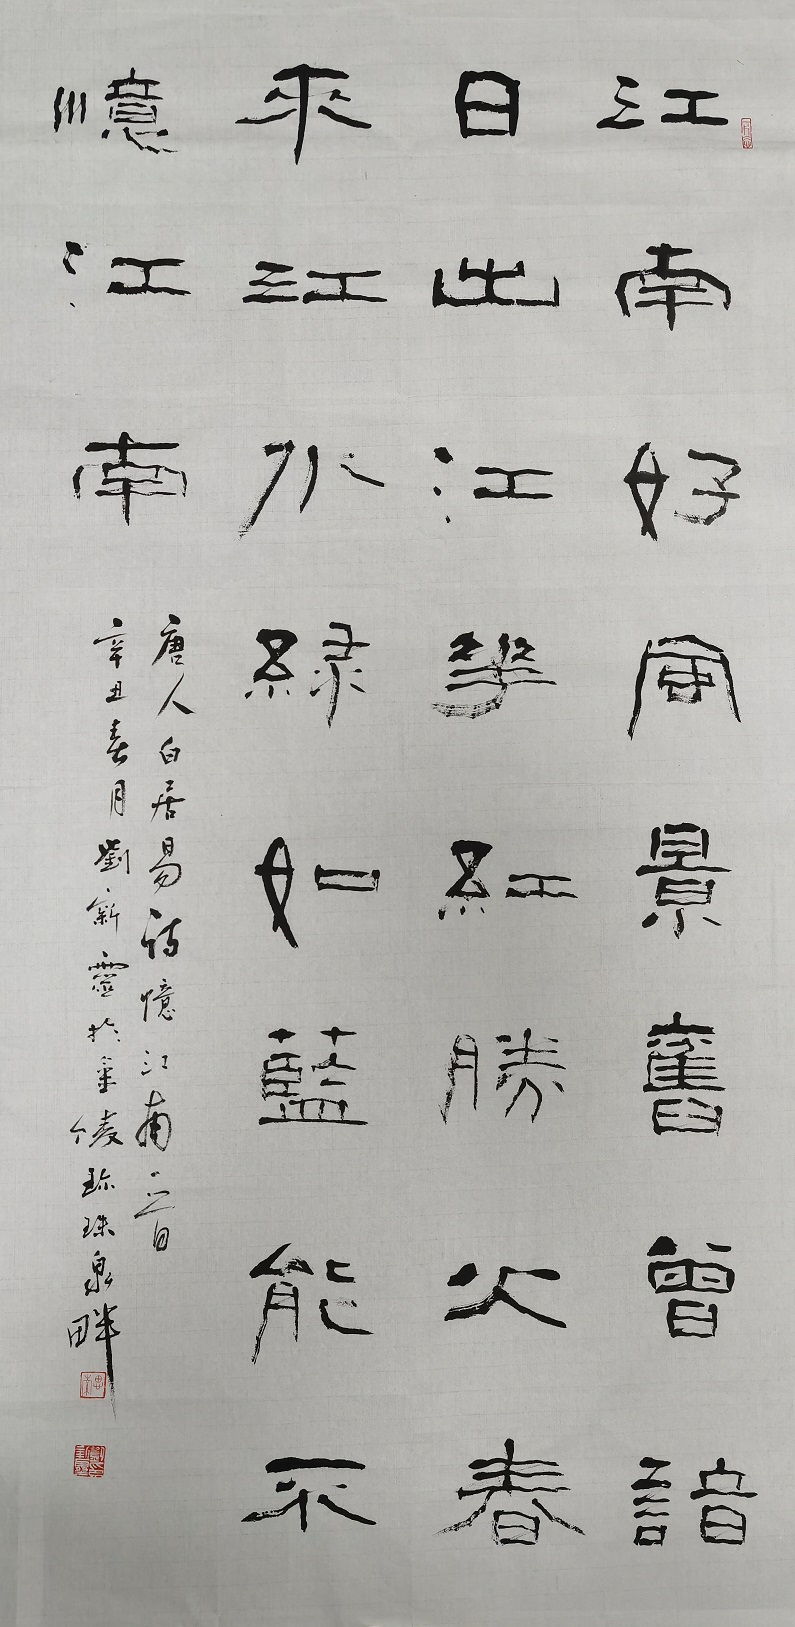 江南好風景舊曾諳
日出江花紅勝火春
來江水綠如藍能不
憶江南
唐人白居易詩憶江南一首
辛丑春月劉新靈於金陵珍珠泉畔